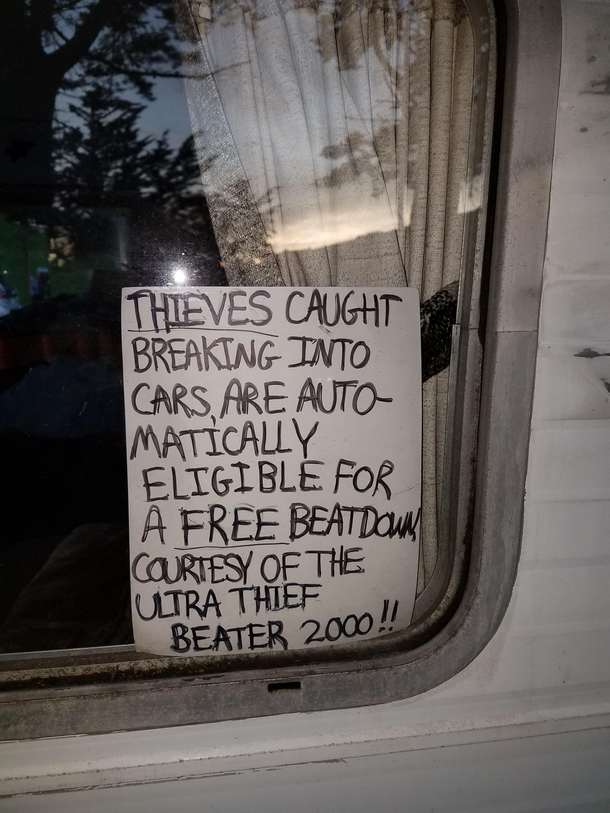 THIEVES CAUGHT
BREAKING INTO
CARS, ARE AUTO-
MATICALLY
ELIGIBLE FOR
A FREE BEATDOWN
COURTESY OF THE
ULTRA THIEF
BEATER 2000!!